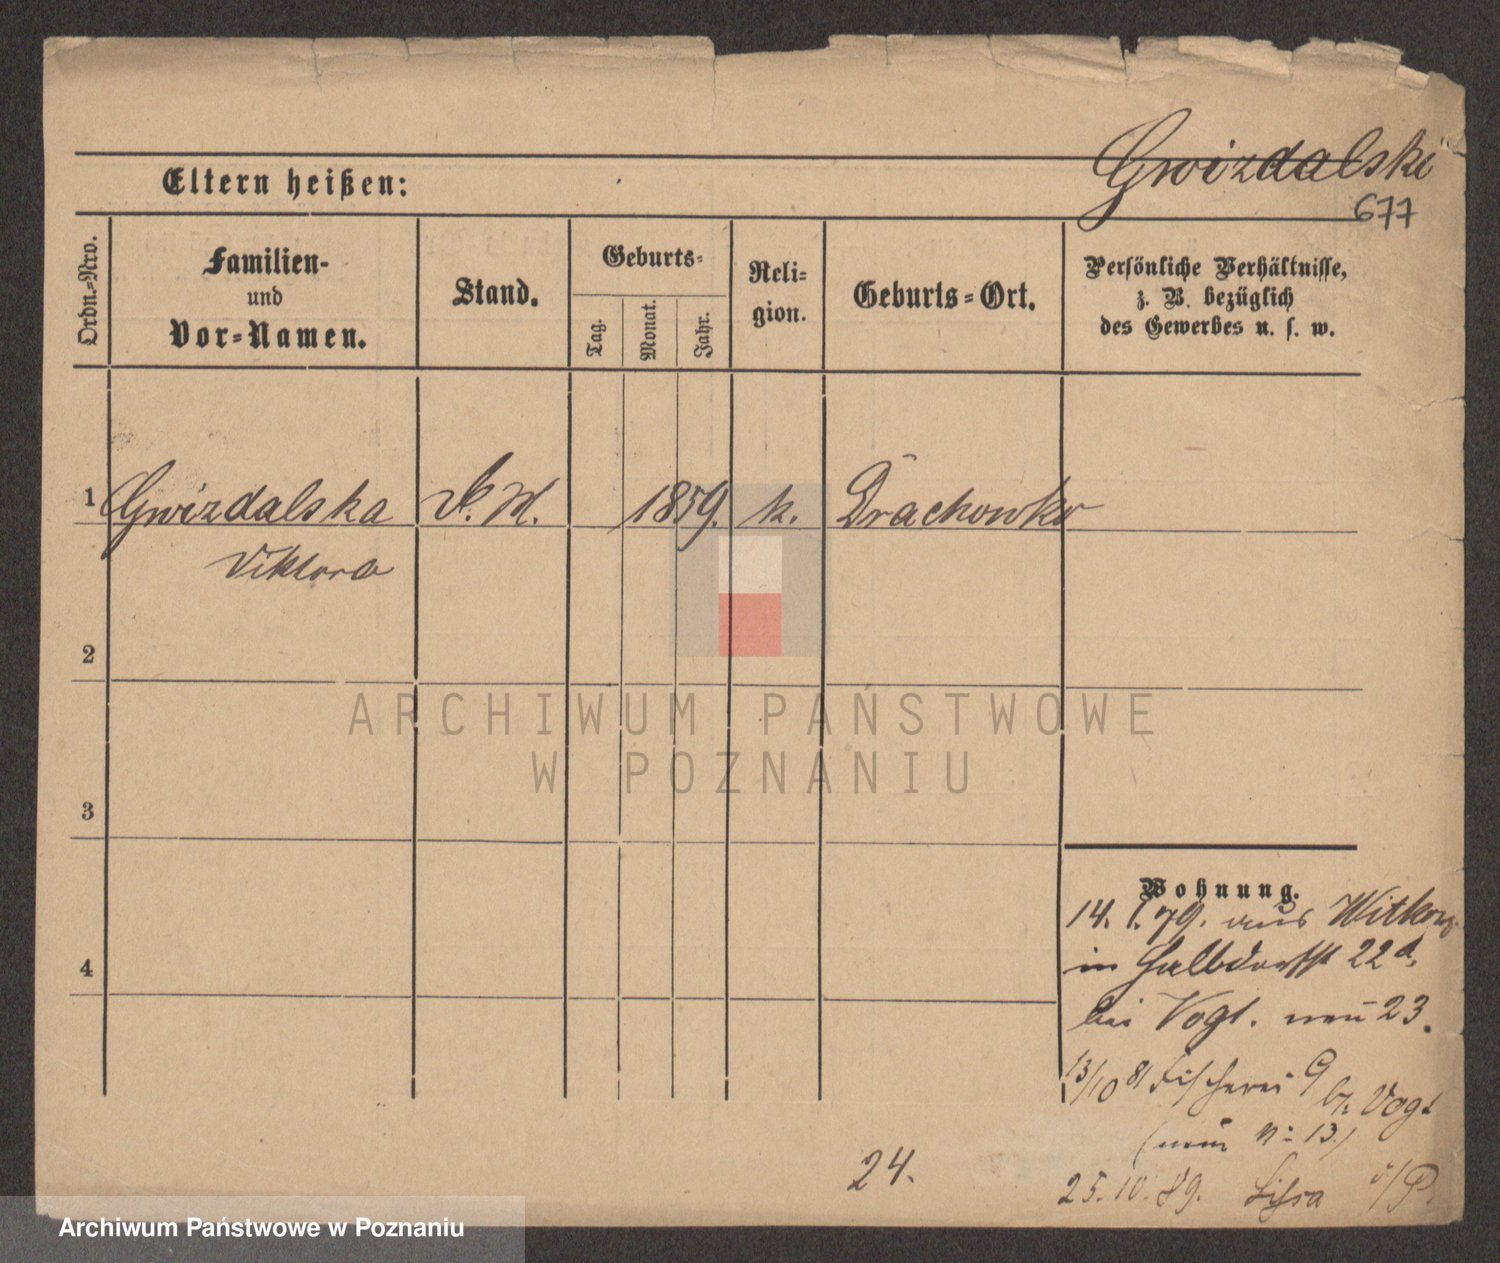 Gwizdalski
Eltern heißen:
677
Ordn.-Nro.
Familien-
und
Vor-Namen.
Stand.
Geburts-
Tag.
Monat.
Jahr.
Reli-
gion.
Geburts-Ort.
Persönliche Verhältnisse,
z. B. bezüglich
des Gewerbes u. s. w.
1
Gwizdalska
1859.
k.
Drachowko
Viktora
2
ARCHIWUM PAŃSTWOWE
W POZNANIU
3
Wohnung.
14. 1. 79. aus Witkow
4
in Halbdorfst 22
bei Vogt. neu 23.
13/10 81 Fischerei 9
b. Vogt
(neu N: 13.)
24.
25. 10. 89. Lissa
Archiwum Państwowe w Poznaniu